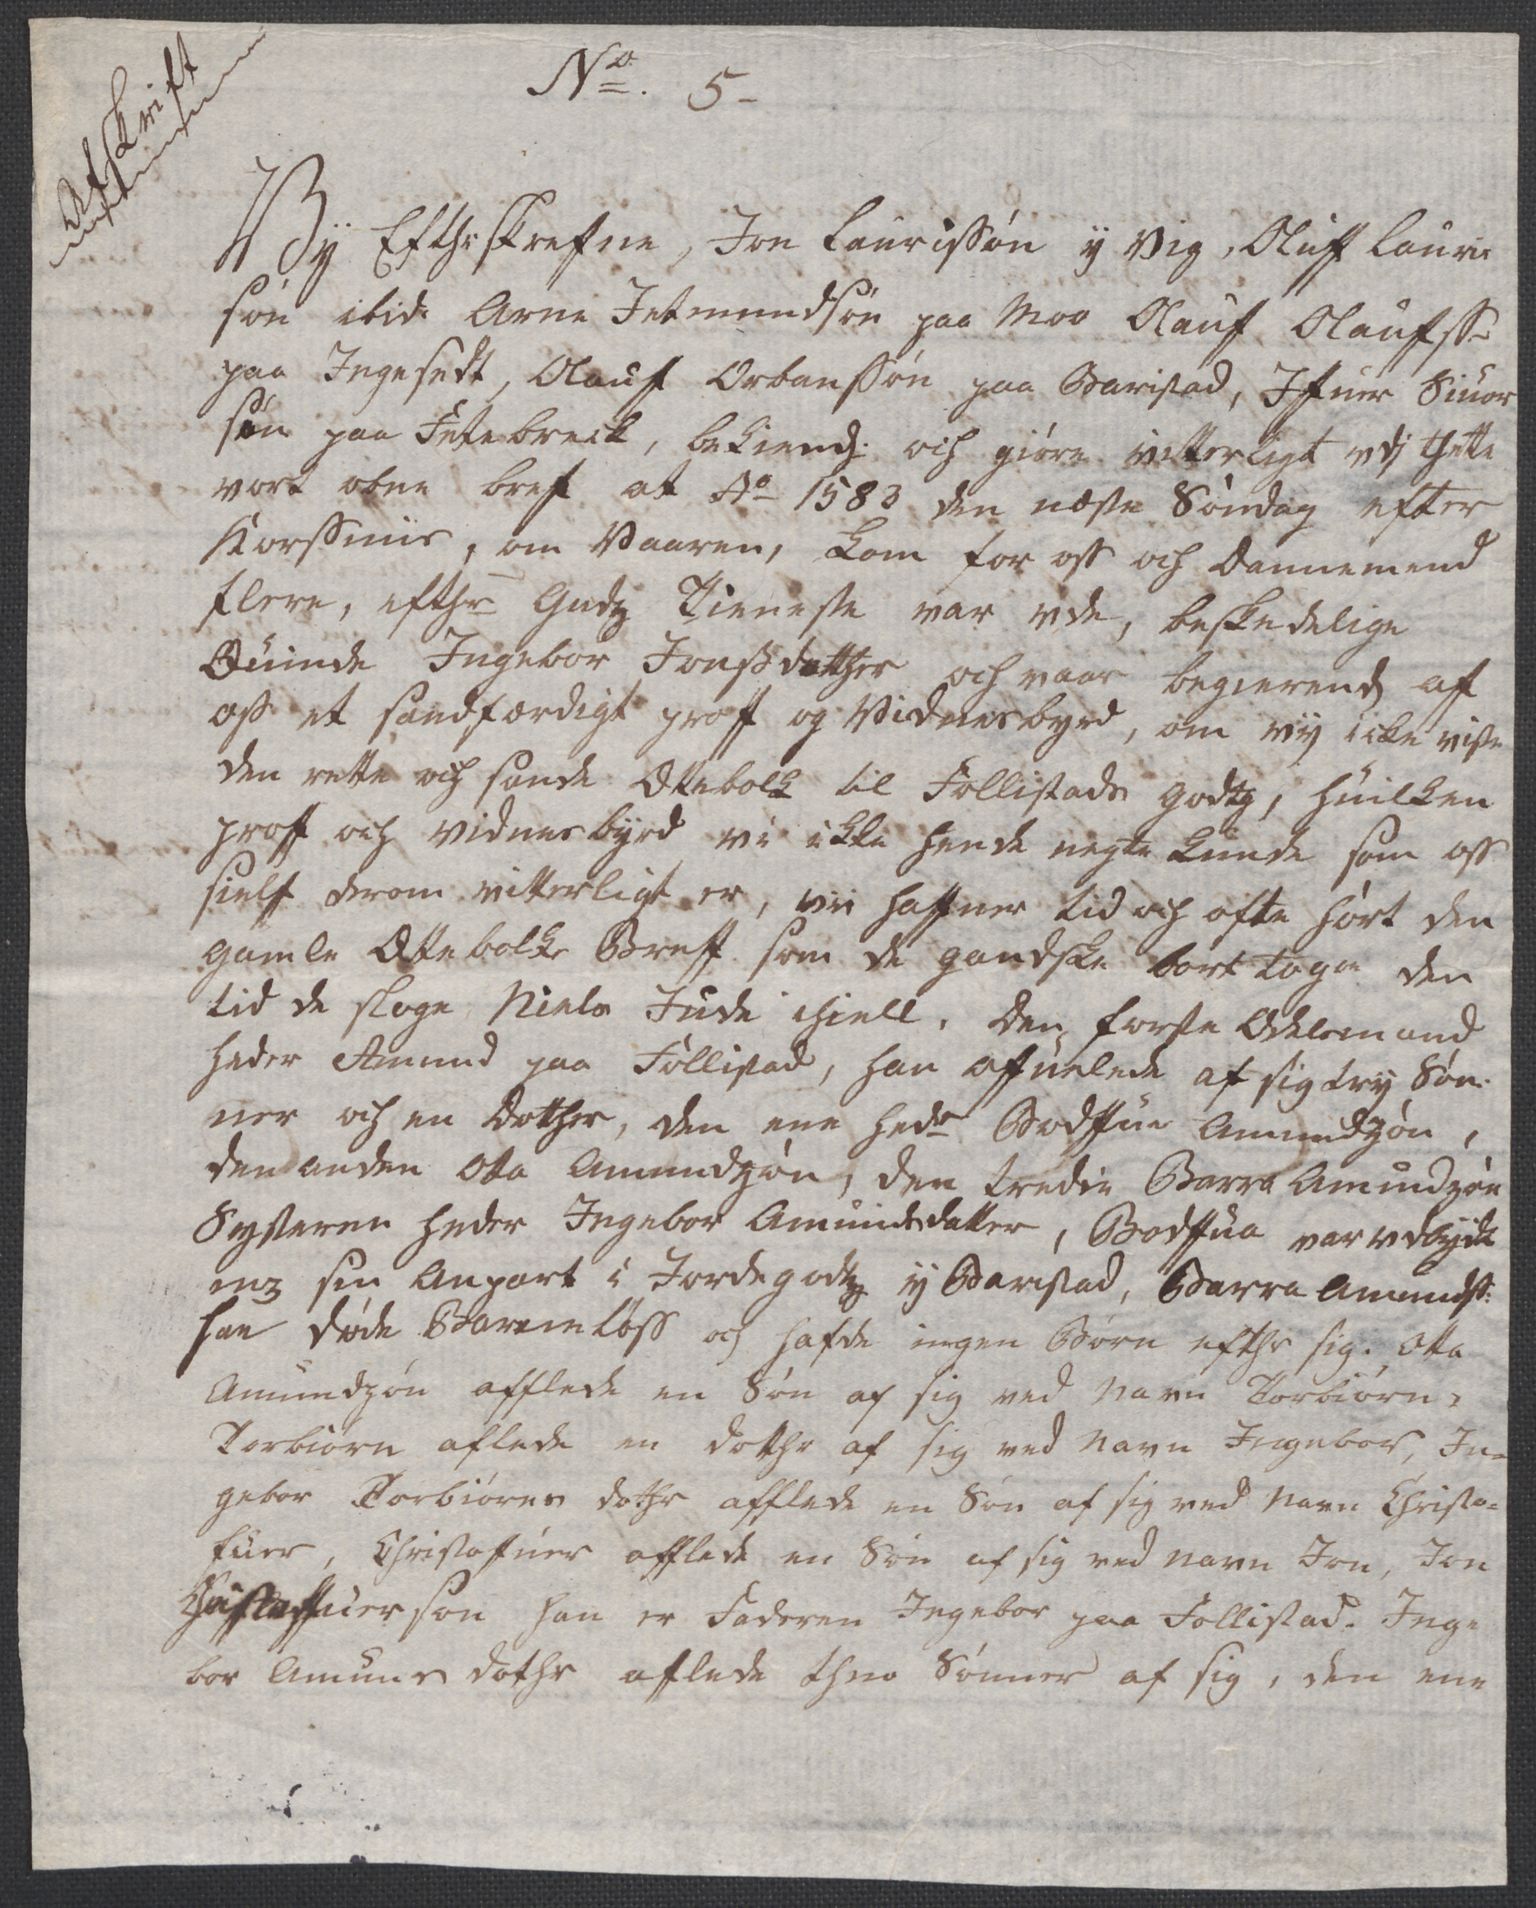 Afskrift
No. 5-
Wy Efthrskrefne, Jon Laurissön y Vig, Oluff Lauris
sön ibid. Arne Jetmundsön paa Moo Olauf Olaufss.
paa Ingesett, Olauf Orbanssön paa Baristad, Ifuer Siuor
sön paa Fetebreck, bekiende och giöre vitterligt vdj thette
vort obne bref at Ao 1583 den neste Söndag efter
Korssmis, om Vaaren, kom for oss och Dannemend
flere, efthr Gudz Tieneste var vde, beskedelige
Quinde Ingebor Jonssdatther och vaar begierend af
oss et sandfærdigt proff og Vidnesbyrd, om wy icke viste
den rette och sande Ottebolk til Follistads godtz, huilken
proff och vidnesbyrd vi ikke hende negte kunde som oss
sielf derom vitterligt er, vii haffuer tid och ofte hört den
gamle Ottebolks Breff som de gandske bort toge den
tid de sloge Niels Jude ihiell. Den forste Odelsmand
heder Amund paa Föllistad, han affuelede af sig try Sön-
ner och en Dotther, den ene hedr Bodffue Amundzön,
den anden Otta Amundzön, den tredie Barra Amundzön
Systeren heder Ingebor Amundsdatter, Bodffua var vdbytt
mz sin Anpart i Jordegodtz y Baristad, Barra Amundss.
han döde Barneelöss och hafde ingen Börn efthr sig. Otta
Amundzön afflede en Sön af sig ved Navn Torbiörn,
Torbiörn aflede en dotthr af sig ved Navn Ingebor, In-
gebor Torbiörns dothr afflede en Sön af sig ved Navn Christo-
fuer, Christofuer afflede en Sön af sig ved navn Jon, Jon
Christoffuerson han er Faderen Ingebor paa Follistad. Inge
bor Amuns dothr aflede thuo Sönner af sig, den ene